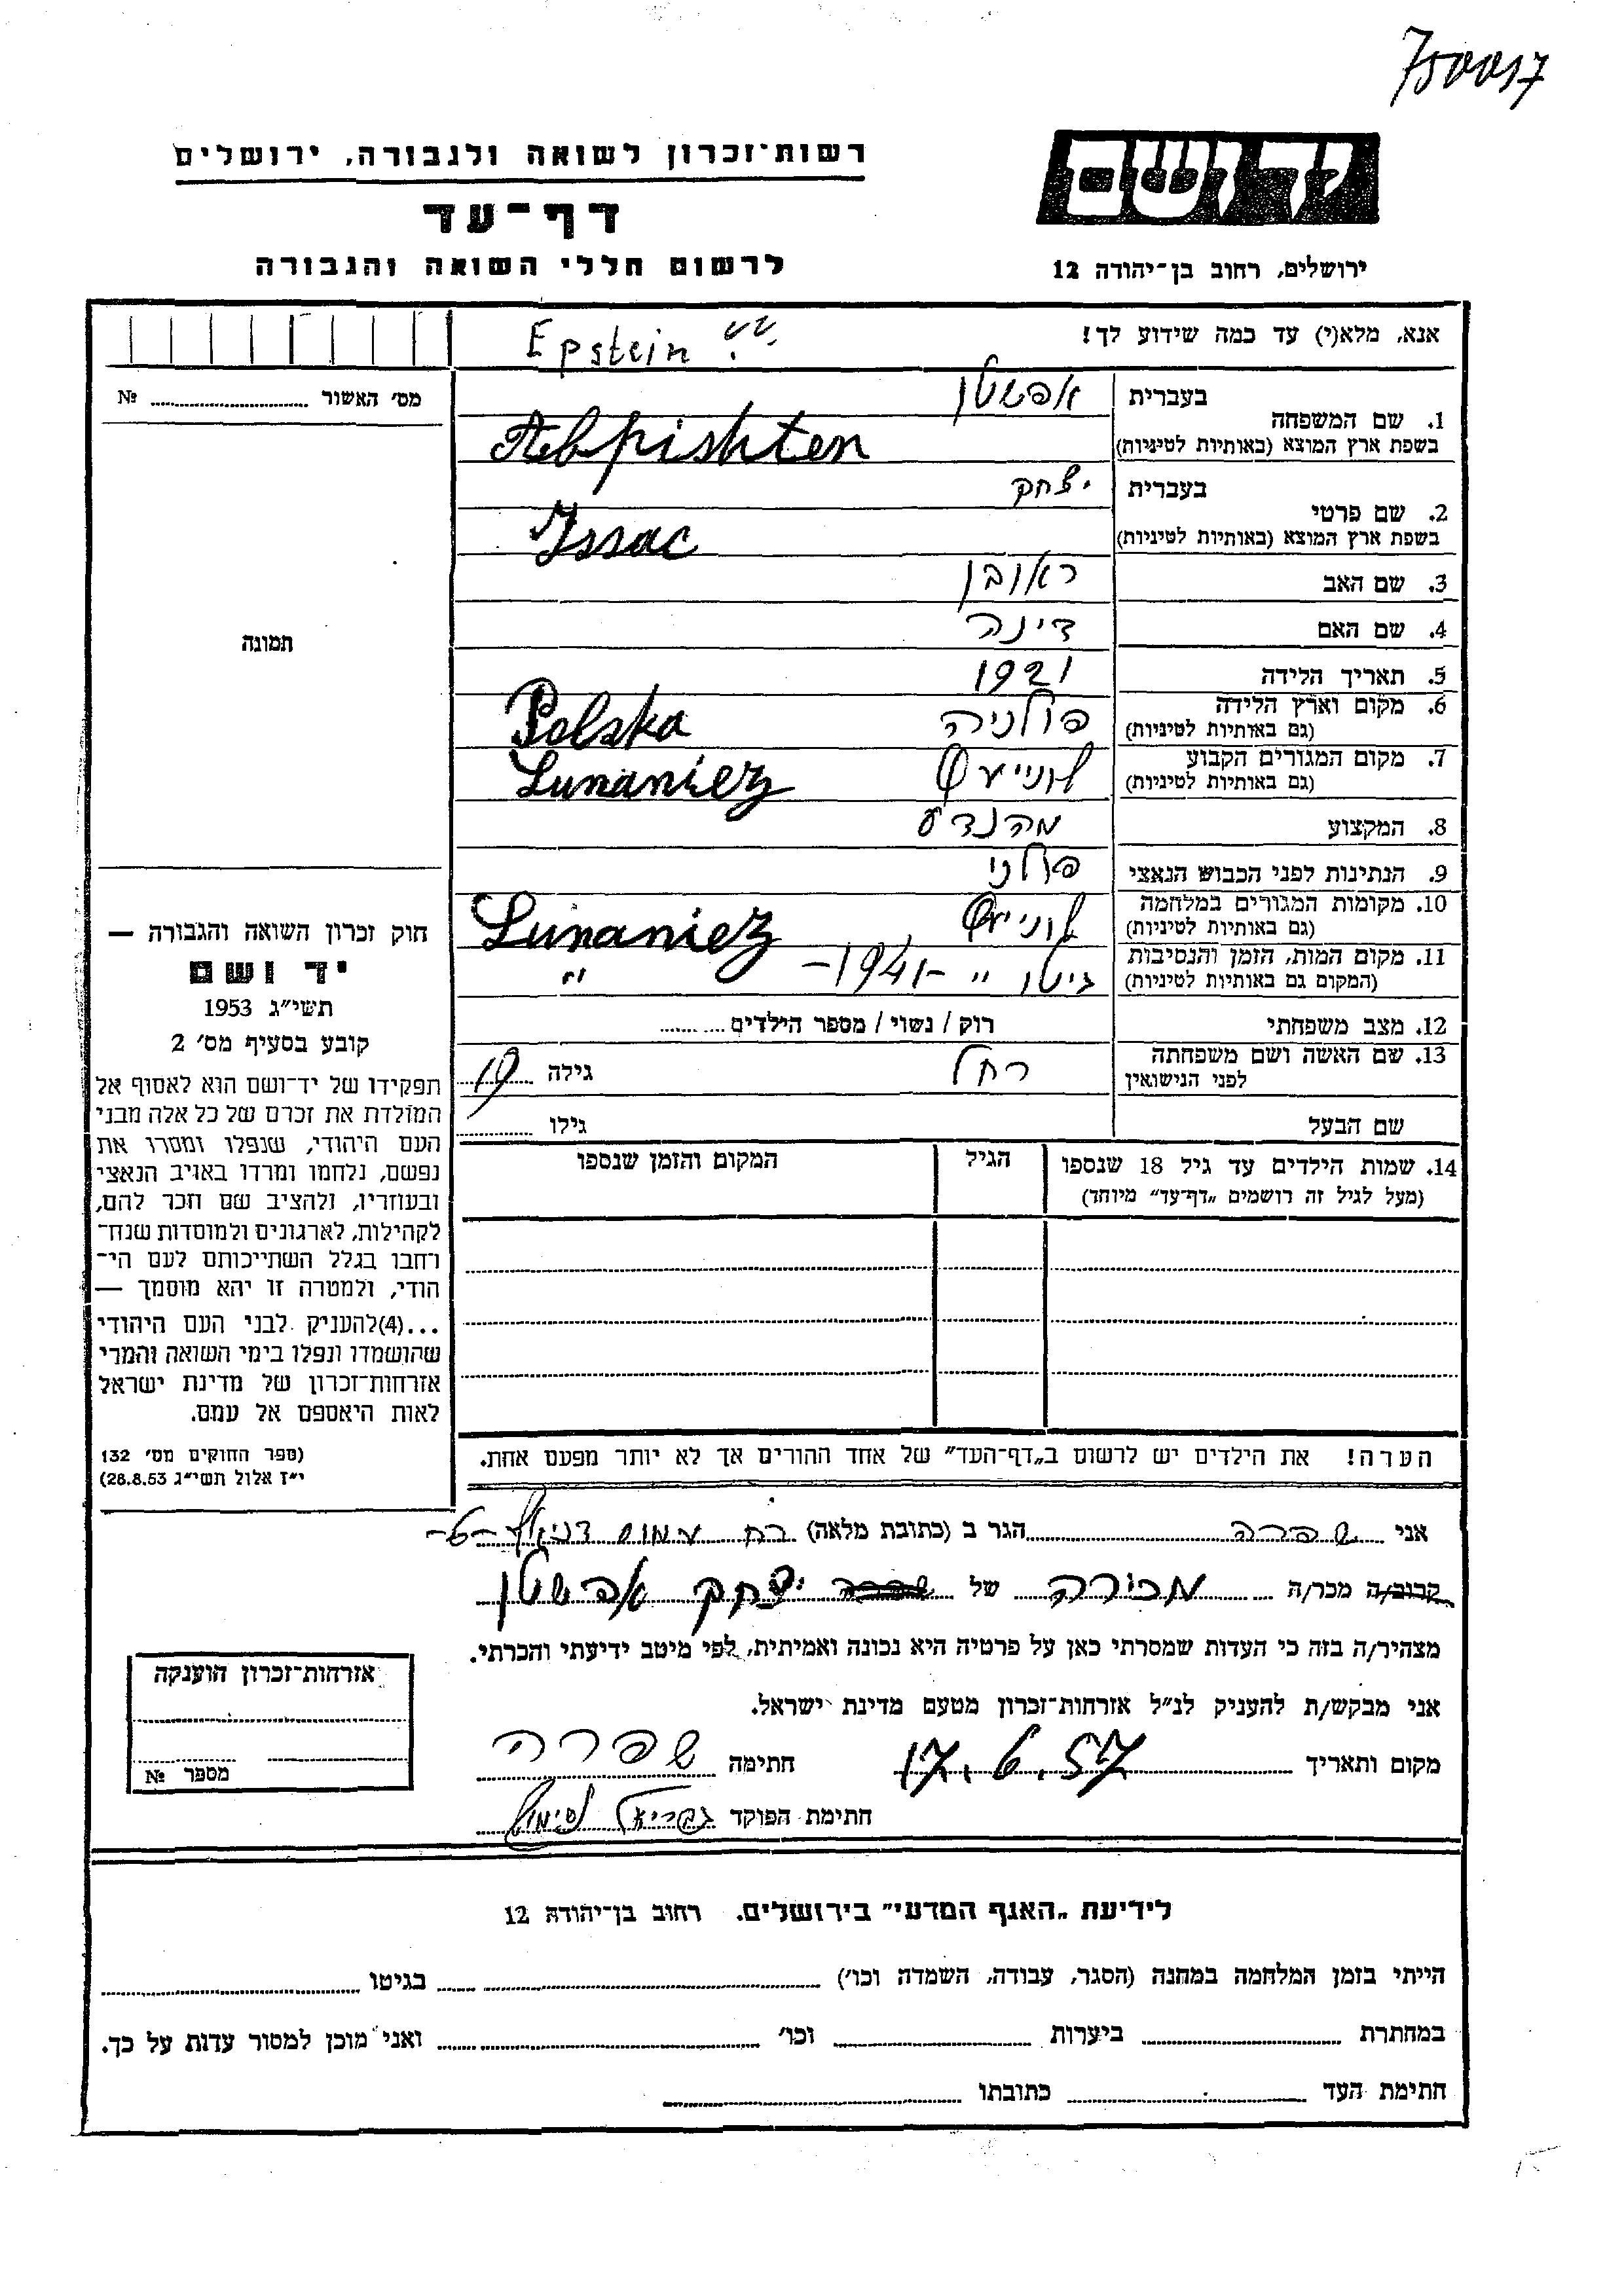 750017
רשות-זכרון לשואה ולגבורה, ירושלים
ידושם
דף-עד
לרשום חללי השואה והגבורה
ירושלים, רחוב בן-יהודה 12
אנא, מלא(י) עד כמה שידוע לך!
Epstein
מס׳ האשור ........ №
1. שם המשפחה
בעברית
אפשטן
בשפת ארץ המוצא (באותיות לטיניות)
Aebpishten
2. שם פרטי
בעברית
יצחק
בשפת ארץ המוצא (באותיות לטיניות)
Issac
3. שם האב
ראובן
4. שם האם
דינה
5. תאריך הלידה
1921
6. מקום וארץ הלידה
(גם באותיות לטיניות)
פולניה Polska
7. מקום המגורים הקבוע
(גם באותיות לטיניות)
Lunaniez
8. המקצוע
מהנדס
9. הנתינות לפני הכבוש הנאצי
פולני
10. מקומות המגורים במלחמה
(גם באותיות לטיניות)
Lunaniez
11. מקום המות, הזמן והנסיבות
(המקום גם באותיות לטיניות)
גיטו " -1941- "
12. מצב משפחתי
רוק / נשוי / מספר הילדים ........
13. שם האשה ושם משפחתה
לפני הנישואין
רחל
גילה 19
שם הבעל
גילו ........
14. שמות הילדים עד גיל 18 שנספו
(מעל לגיל זה רושמים „דף-עד״ מיוחד)
הגיל
המקום והזמן שנספו
תמונה
חוק זכרון השואה והגבורה —
יד ושם
תשי״ג 1953
קובע בסעיף מס׳ 2
תפקידו של יד-ושם הוא לאסוף אל
המולדת את זכרם של כל אלה מבני
העם היהודי, שנפלו ומסרו את
נפשם, נלחמו ומרדו באויב הנאצי
ובעוזריו, ולהציב שם וזכר להם,
לקהילות, לארגונים ולמוסדות שנח-
רחבו בגלל השתייכותם לעם הי-
הודי, ולמטרה זו יהא מוסמך —
...(4)להעניק לבני העם היהודי
שהושמדו ונפלו בימי השואה והמרי
אזרחות-זכרון של מדינת ישראל
לאות היאספם אל עמם.
(ספר החוקים מס׳ 132
י״ז אלול תשי״ג 28.8.53)
הערה! את הילדים יש לרשום ב„דף-העד״ של אחד ההורים אך לא יותר מפעם אחת.
אני שפרה הגר ב (כתובת מלאה) רח עמוס דניאל -6-
קרוב/ה מכר/ה מכירה של יצחק אפשטן
מצהיר/ה בזה כי העדות שמסרתי כאן על פרטיה היא נכונה ואמיתית, לפי מיטב ידיעתי והכרתי.
אני מבקש/ת להעניק לנ״ל אזרחות-זכרון מטעם מדינת ישראל.
מקום ותאריך 17.6.57 חתימה שפרה
חתימת הפוקד גבריאל
אזרחות-זכרון הוענקה
מספר №
לידיעת „האגף המדעי״ בירושלים, רחוב בן-יהודה 12
הייתי בזמן המלחמה במחנה (הסגר, עבודה, השמדה וכו׳) ........ בגיטו ........
במחתרת ........ ביערות ........ וכו׳ ........ ואני מוכן למסור עדות על כך.
חתימת העד ........ כתובתו ........